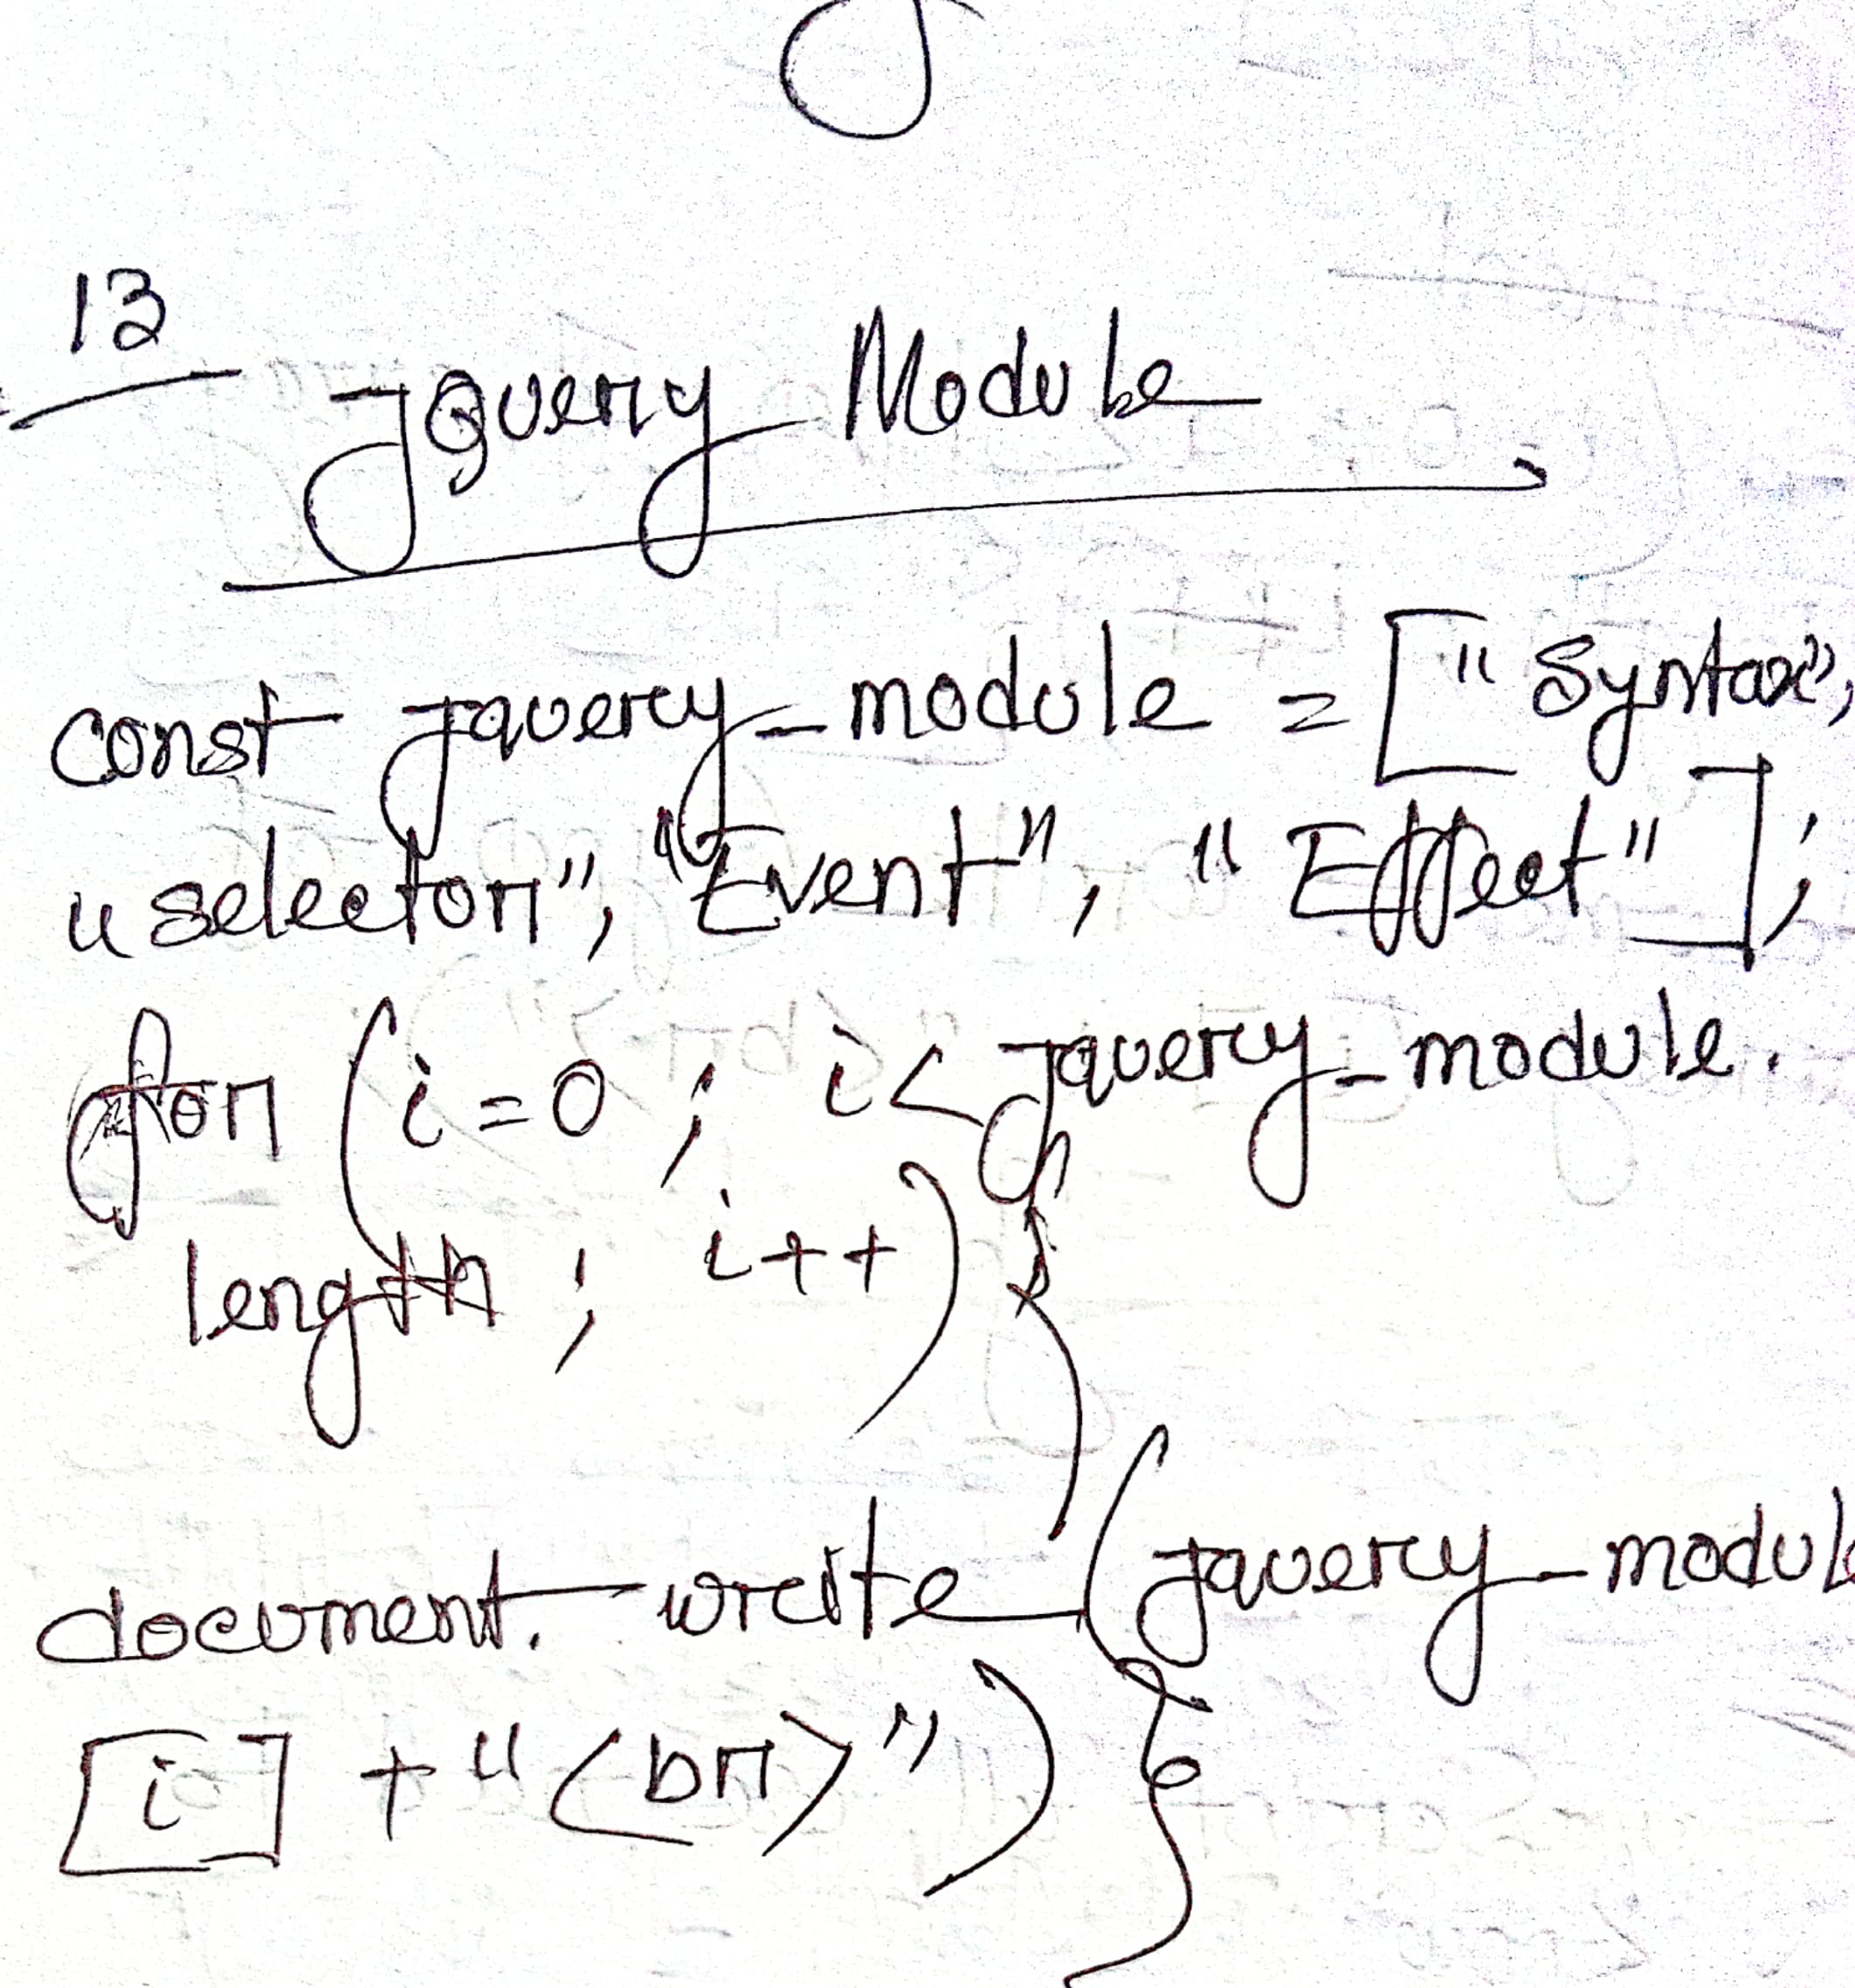 13
JQuery Module
const jquery_module = ["Syntax",
"selector", "Event", "Effect"];
for (i=0; i<jquery_module.
length; i++) {
document.write(jquery_modul
[i] + "<br>") }